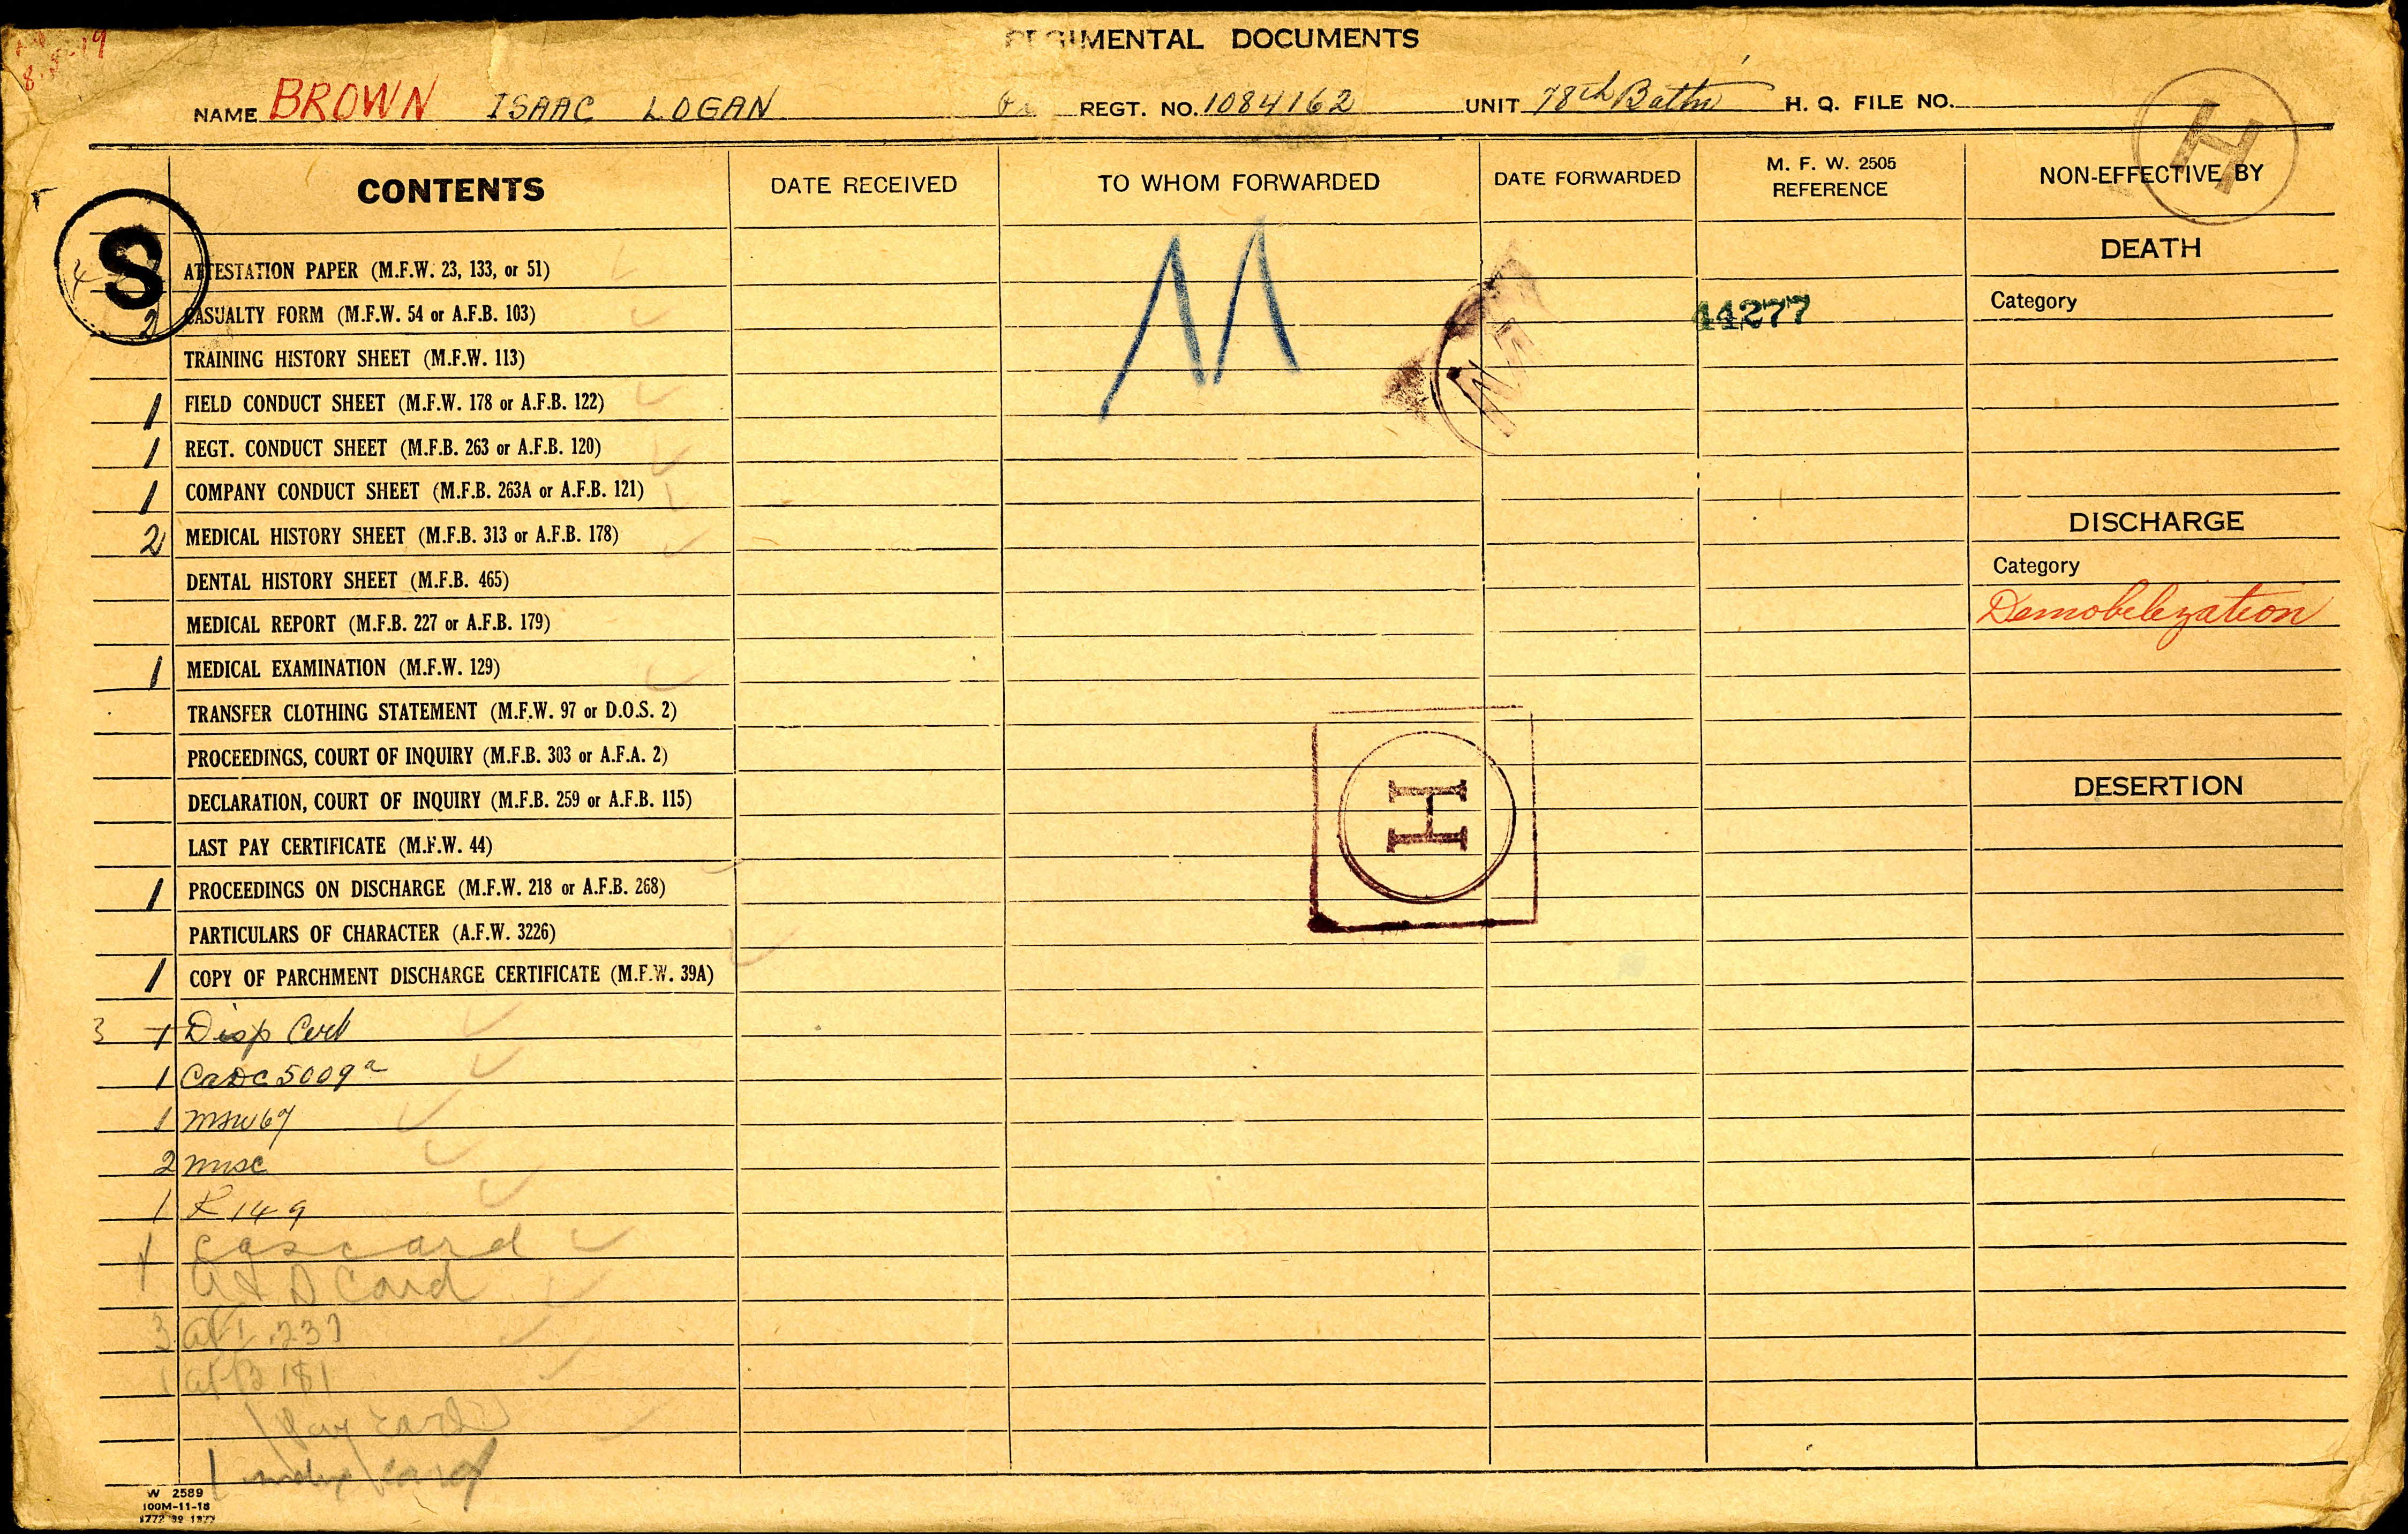 8-5-19
REGIMENTAL DOCUMENTS
NAME BROWN ISAAC LOGAN REGT. NO. 1084162 UNIT 78th Battn H. Q. FILE NO.
H
CONTENTS DATE RECEIVED TO WHOM FORWARDED DATE FORWARDED M. F. W. 2505 REFERENCE NON-EFFECTIVE BY
S
DEATH
4 ATTESTATION PAPER (M.F.W. 23, 133, or 51)
2 CASUALTY FORM (M.F.W. 54 or A.F.B. 103) 44277 Category
TRAINING HISTORY SHEET (M.F.W. 113)
1 FIELD CONDUCT SHEET (M.F.W. 178 or A.F.B. 122)
1 REGT. CONDUCT SHEET (M.F.B. 263 or A.F.B. 120)
1 COMPANY CONDUCT SHEET (M.F.B. 263A or A.F.B. 121)
DISCHARGE
2 MEDICAL HISTORY SHEET (M.F.B. 313 or A.F.B. 178)
DENTAL HISTORY SHEET (M.F.B. 465) Category
MEDICAL REPORT (M.F.B. 227 or A.F.B. 179) Demobelezation
1 MEDICAL EXAMINATION (M.F.W. 129)
TRANSFER CLOTHING STATEMENT (M.F.W. 97 or D.O.S. 2)
PROCEEDINGS, COURT OF INQUIRY (M.F.B. 303 or A.F.A. 2)
DECLARATION, COURT OF INQUIRY (M.F.B. 259 or A.F.B. 115) H DESERTION
LAST PAY CERTIFICATE (M.F.W. 44)
1 PROCEEDINGS ON DISCHARGE (M.F.W. 218 or A.F.B. 268)
PARTICULARS OF CHARACTER (A.F.W. 3226)
1 COPY OF PARCHMENT DISCHARGE CERTIFICATE (M.F.W. 39A)
3 1 Disp Cert
1 CADC 5009a
1 MFW 67
2 misc
1 R 149
1 Cas card
A & D Card
3 237
1 afB 181
1 Pay card
1 index card
W 2589
100M-11-18
1772 39 1377